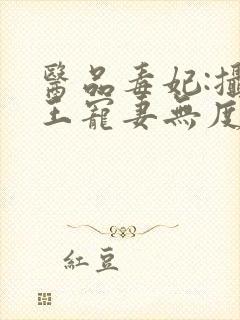 醫品毒妃:攝
王寵妻無度
紅豆